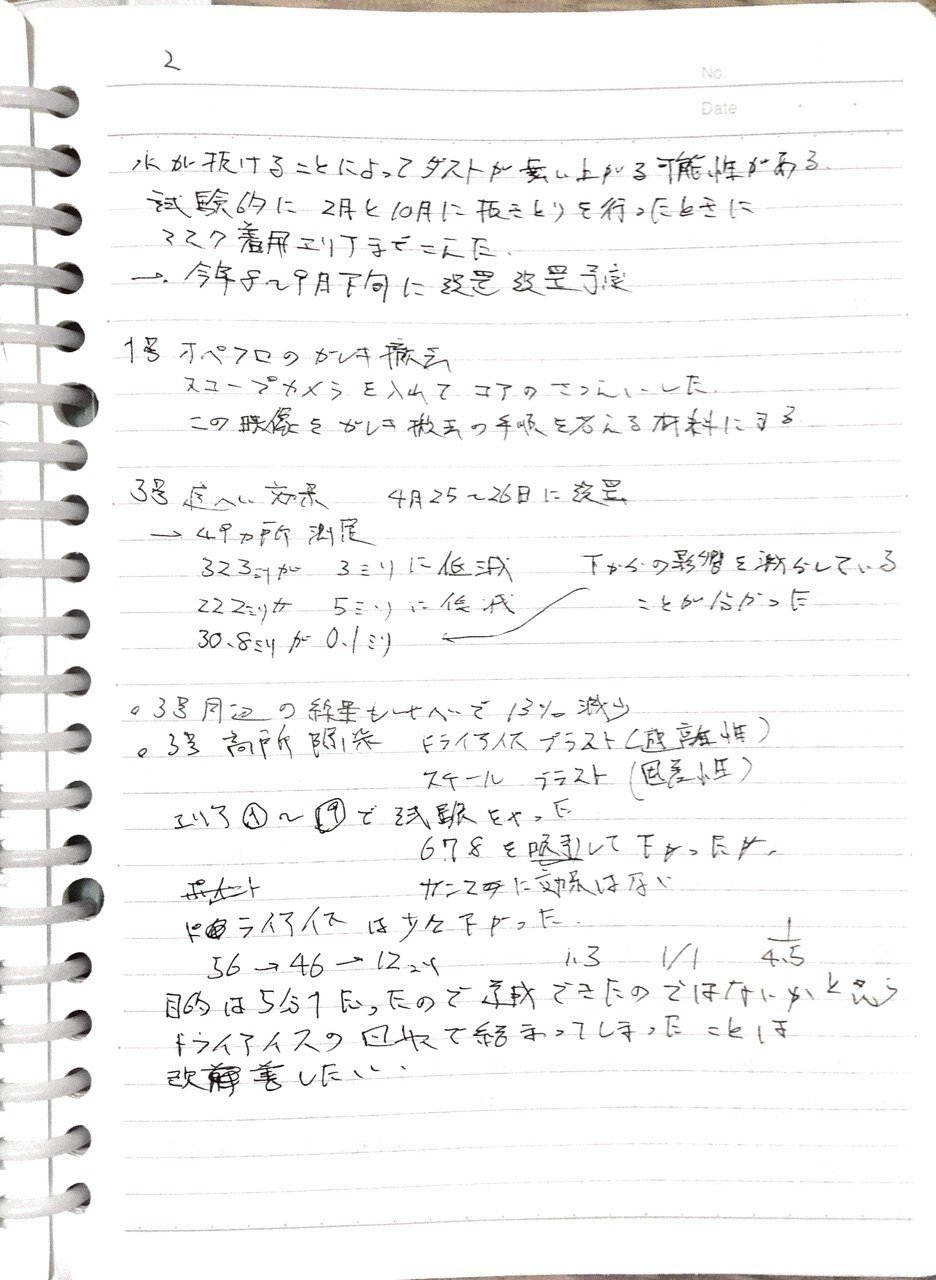 2
No.
Date
水が抜けることによってダストが舞い上がる可能性がある.
試験的に 2月と10月に抜きとりを行ったときに
マスク着用エリアまでこんだ.
→ 今年8〜9月下旬に設置 設置予定
1号 オペフロのがれき撤去
スコープカメラを入れて コアのさつえいした.
この映像をがれき撤去の手順を考える材料にする
3号 遮へい効果 4月25〜26日に設置
→ 49カ所 測定
323ミリが 3ミリに低減 下からの影響を減らしている
222ミリが 5ミリに低減 ことが分かった
30.8ミリが 0.1ミリ
。3号周辺の線量もしゃへいで 13% 減少
。3号 高所除染 ドライアイスブラスト(遊離性)
スチール ブラスト (固着性)
エリア①〜⑨で試験をやった
678を吸引して下がったが、
ガンマ に効果はない
ドライアイスは少々下がった.
56→46→12ミリ 1.3 1/1 1/4.5
目的は5分1だったので達成できたのではないかと思う
ドライアイスの回収で結まってしまったことは
改善したい.